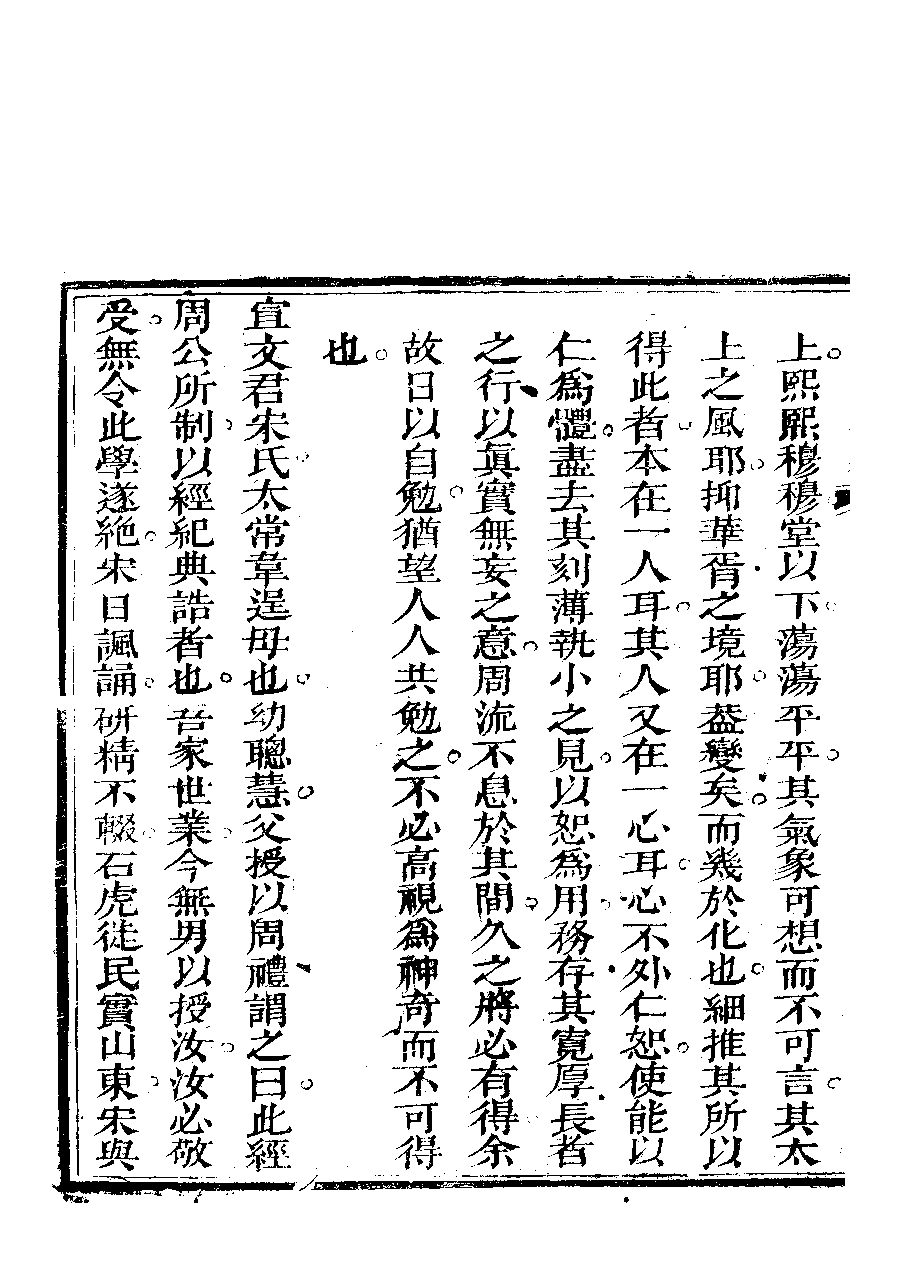 上。熙熙穆穆。堂以下。蕩蕩平平。其氣象可想而不可言。其太
上之風耶。抑華胥之境耶。葢變矣。而幾於化也。細推其所以
得此者。本在一人耳。其人又在一心耳。心不外仁恕。使能以
仁為體。盡去其刻薄執小之見。以恕為用。務存其寬厚長者
之行。以眞實無妄之意。周流不息於其間。久之將必有得。余
故日以自勉。猶望人人共勉之。不必高視為神奇而不可得
也。
宣文君宋氏。太常韋逞母也。幼聰慧。父授以周禮。謂之曰。此經
周公所制。以經紀典誥者也。吾家世業。今無男以授汝。汝必敬
受。無令此學遂絶。宋日諷誦。研精不輟。石虎徒民實山東。宋與